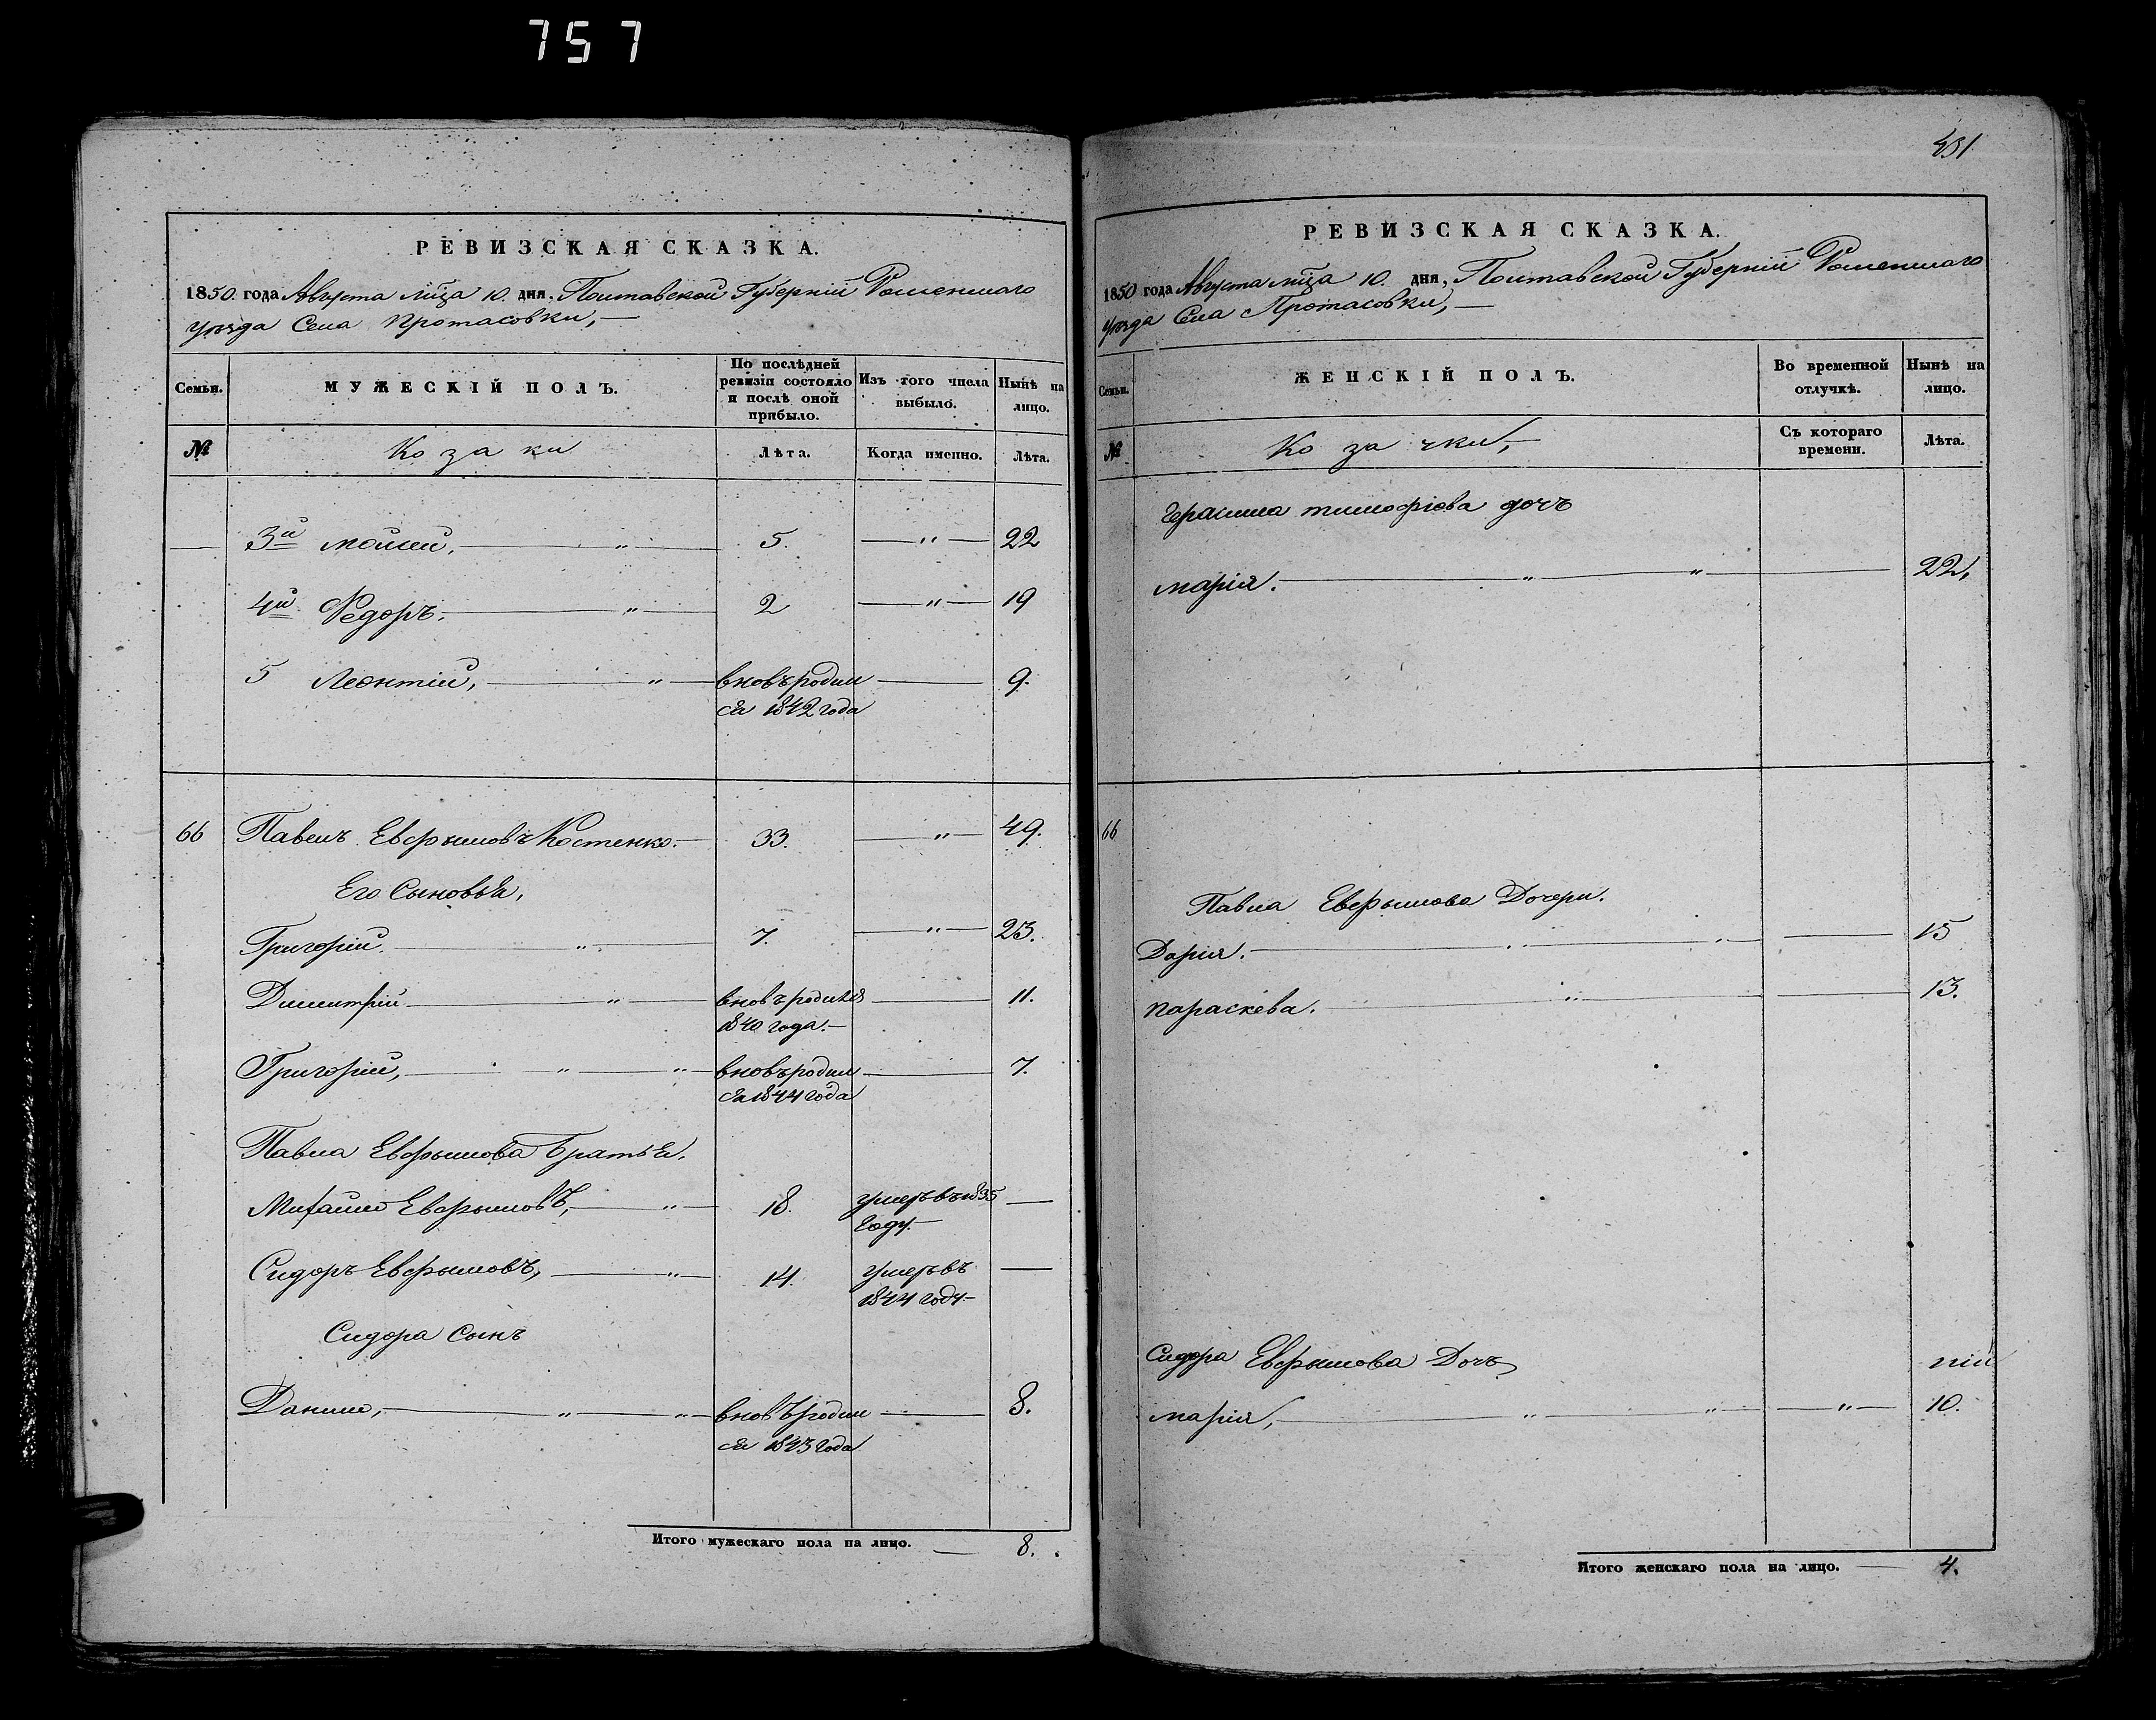 757
РЕВИЗСКАЯ СКАЗКА.
1850 года Августа м͠ца 10. дня, Полтавской Губерніи Роменшаго
уѣзда Села Протасовки,
Семьи.
МУЖЕСКІЙ ПОЛЪ.
По послѣдней ревизіи состояло и послѣ оной прибыло.
Изъ того числа выбыло.
Нынѣ на лицо.
№
Козаки
Лѣта.
Когда именно.
Лѣта.
3й Мойсей. " 5. " 22
4й Федоръ. " 2 " 19
5 Леонтій, " вновь родил 9.
ся 1842 года
66 Павелъ Евфимовъ Костенко. 33. " 49.
Его Сыновья,
Григорій. " 7. " 23.
Димитрій " вновь родился 11.
1840 года.
Григорій, " " вновь родил 7.
ся 1844 года
Павла Евфимова Братья.
Михаилъ Евфимовъ, " 18. умеръ въ 1835
году.
Сидоръ Евфимовъ, " 14. умеръ въ
1844 году.
Сидора Сынъ
Данило, " " вновь родил 8.
ся 1843 года
Итого мужескаго пола на лицо. 8.
431
РЕВИЗСКАЯ СКАЗКА.
1850 года Августа м͠ца 10. дня, Полтавской Губерніи Роменшаго
уѣзда Села Протасовки,
Семьи.
ЖЕНСКІЙ ПОЛЪ.
Во временной отлучкѣ.
Нынѣ на лицо.
№
Козачки,
Съ котораго времени.
Лѣта.
Герасима тимофіева дочь
марія. " " 22.
66
Павла Евфимова Дочери.
Дарія. " " 15
параскева. " 13.
Сидора Евфимова Дочь
марія, " " " 10.
Итого женскаго пола на лицо. 4.